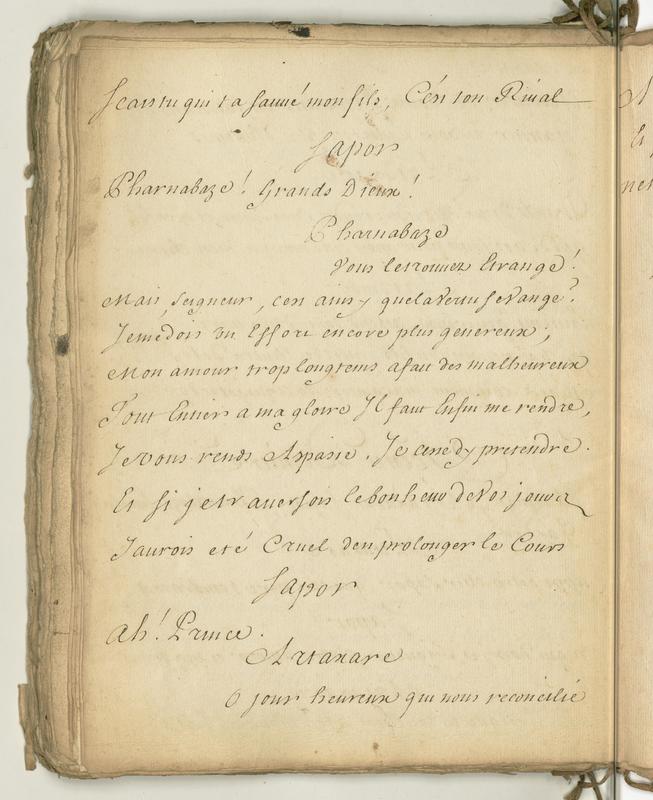 Scais tu qui t'a sauué mon fils, C'ést ton Riual
Sapor
Pharnabaze! Grands Dieux!
Pharnabaze
Vous le trouuez Etrange!
Mais, Seigneur, cest ainsy que la vertu se vange?
Je me dois un Effort encore plus genereux;
Mon amour trop longtems a fait des malheureux
Tout Entier a ma gloire Il faut Enfin me rendre,
Je vous rends Aspasie. Je cesse dy pretendre.
Et si je trauersois le bonheur de vos jours
Jaurois eté Cruel den prolonger le Cours
Sapor
Ah! Prince.
Artaxare
O jour heureux qui nous reconcilie
A
Et